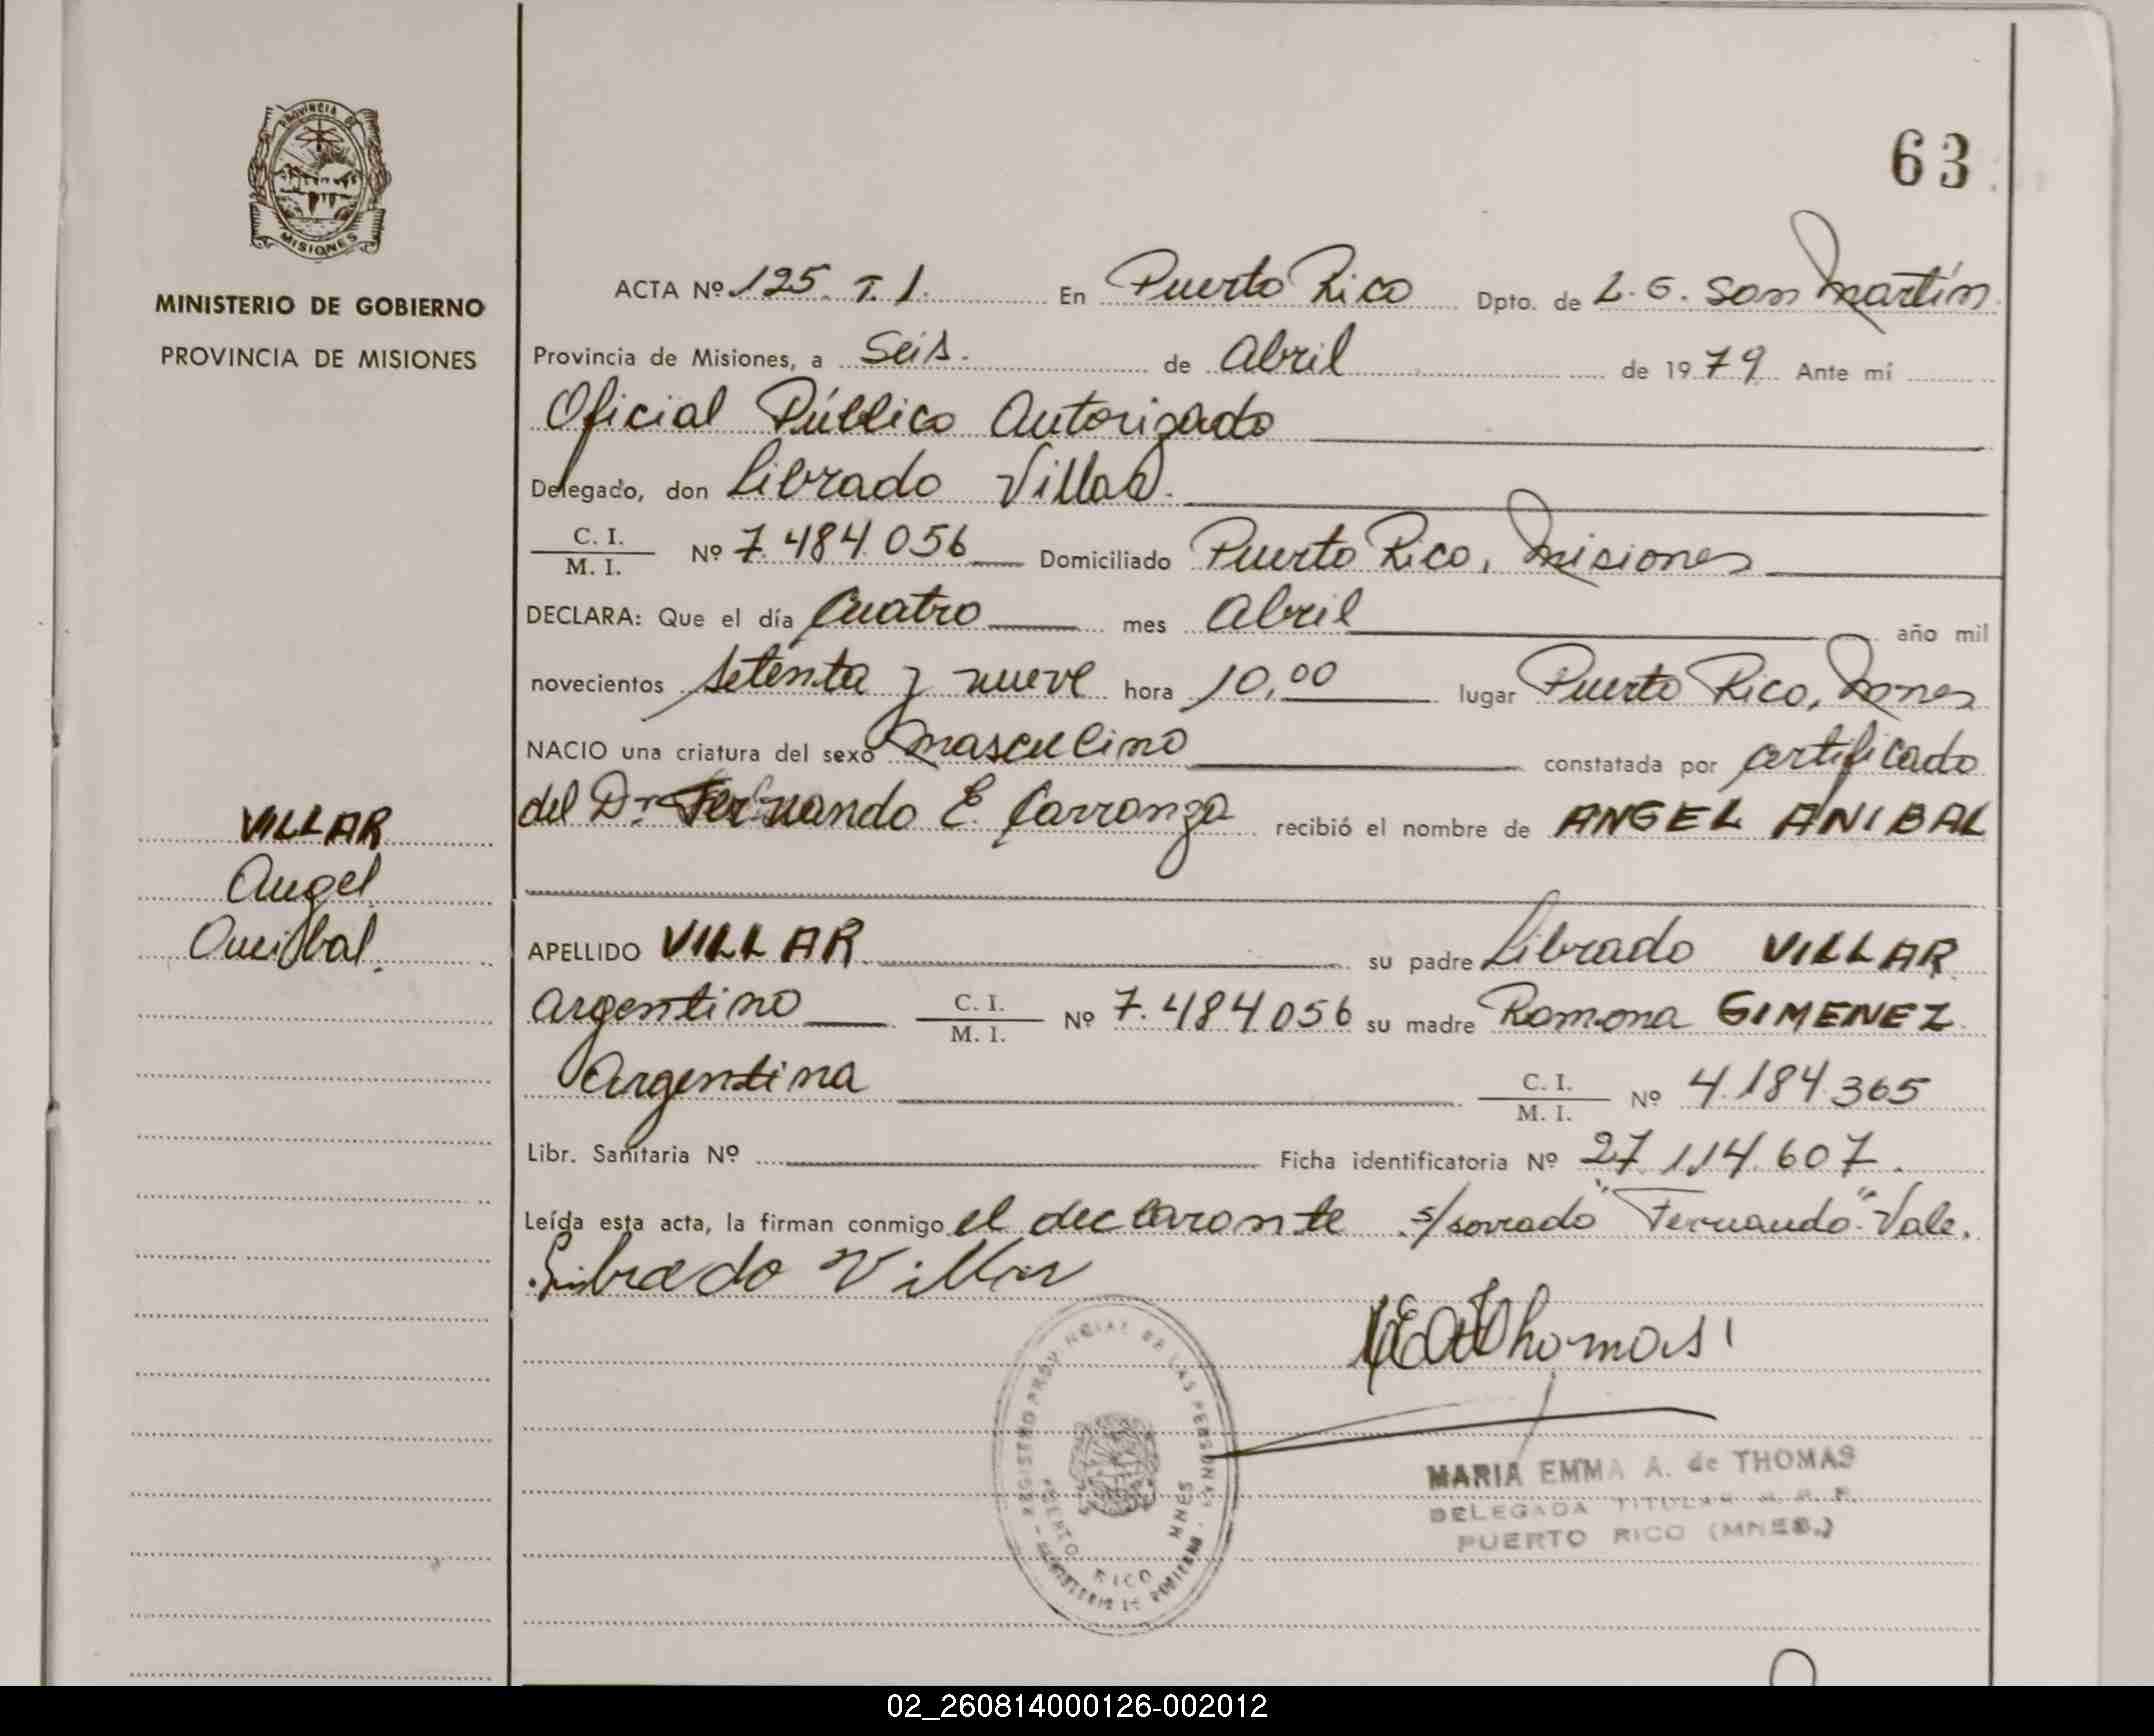 63
PROVINCIA DE
MISIONES
MINISTERIO DE GOBIERNO
PROVINCIA DE MISIONES
VILLAR
Angel
Anibal.
ACTA Nº 125. T. 1. En Puerto Rico Dpto. de L. G. San Martín
Provincia de Misiones, a Seis. de Abril de 1979 Ante mí
Oficial Público Autorizado
Delegado, don Librado Villar.
C. I. / M. I. Nº 7.484.056 Domiciliado Puerto Rico, Misiones
DECLARA: Que el día Cuatro mes Abril año mil
novecientos setenta y nueve hora 10,00 lugar Puerto Rico, Mnes
NACIO una criatura del sexo masculino constatada por certificado
del Dr. Fernando E. Carranza recibió el nombre de ANGEL ANIBAL
APELLIDO VILLAR su padre Librado VILLAR
argentino C. I. / M. I. Nº 7.484.056 su madre Ramona GIMENEZ
Argentina C. I. / M. I. Nº 4.184.365
Libr. Sanitaria Nº Ficha identificatoria Nº 27.114.607.
Leída esta acta, la firman conmigo el declarante s/borrado "Fernando" Vale.
Librado Villar
Thomas
REGISTRO PROVINCIAL DE LAS PERSONAS
PUERTO RICO MNES
MINISTERIO DE GOBIERNO
MARIA EMMA A. de THOMAS
DELEGADA TITULAR R. P. P.
PUERTO RICO (MNES.)
02_260814000126-002012